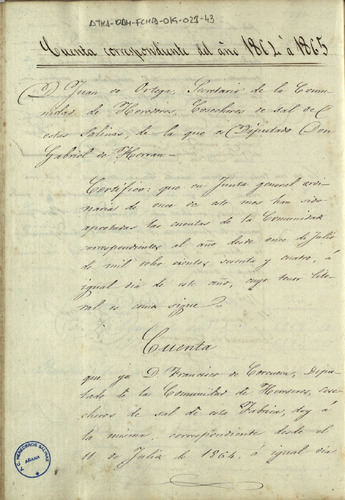 ATHA-DAH-FCHB-019-028-43
Cuenta correspondiente del año 1862 á 1865
D. Juan de Ortega, Secretario de la Comu-
nidad de Herederos, Cosecheros de sal de
estas Salinas, de la que es Diputado Don
Gabriel de Herran
Certifico: que en Junta general ordi-
naria de once de este mes han sido
aprobadas las cuentas de la Comunidad
correspondientes al año desde once de Julio
de mil ocho cientos sesenta y cuatro, á
igual dia de este año, cuyo tenor lite-
ral es como sigue
Cuenta
que yo D. Francisco de Corcuera, Diputa-
do de la Comunidad de Herederos, cose-
cheros de sal de esta Fabrica, doy á
la misma, correspondiente desde el
11 de Julio de 1864, á igual dia
HEREDEROS SALINAS
AÑANA